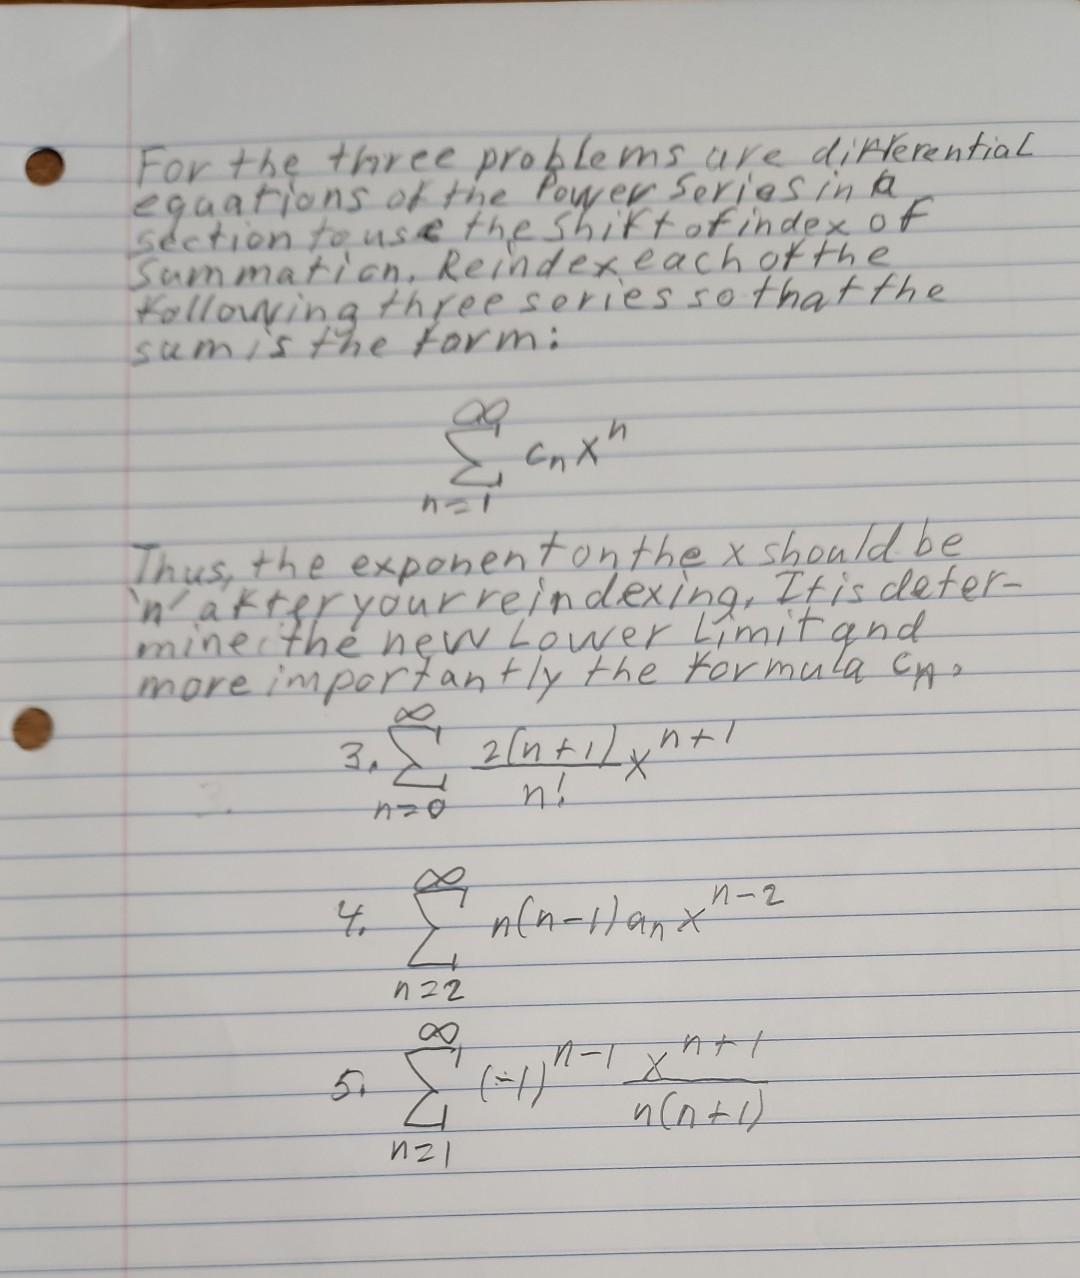 For the three problems are differential
equations of the Power Series in a
section to use the shift of index of
summation. Reindex each of the
following three series so that the
sum is the form:
∞
∑ cₙ xⁿ
n=1
Thus, the exponent on the x should be
'n' after your reindexing. It is deter-
mine the new Lower Limit and
more importantly the formula cₙ.
∞
3. ∑ 2(n+1)/n! xⁿ⁺¹
n=0
∞
4. ∑ n(n-1)aₙ xⁿ⁻²
n=2
∞
5. ∑ (-1)ⁿ⁻¹ xⁿ⁺¹/n(n+1)
n=1